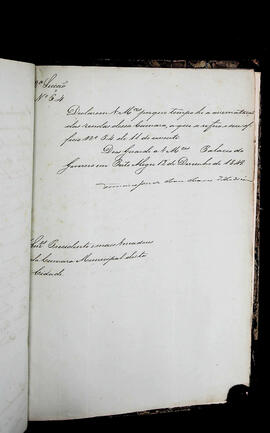 2ª Secção
Nº 64
Declarem V. Mces porque tempo he a arematação
das rendas dessa Camara, a que se refere o seu of
ficio Nº 54 de 11 do corrente
Deos Guarde a V. Mces Palacio do
Governo em Porto Alegre 12 de Dezembro de 1848
Snrs Presidente e mais Vereadores
da Camara Municipal desta
Cidade